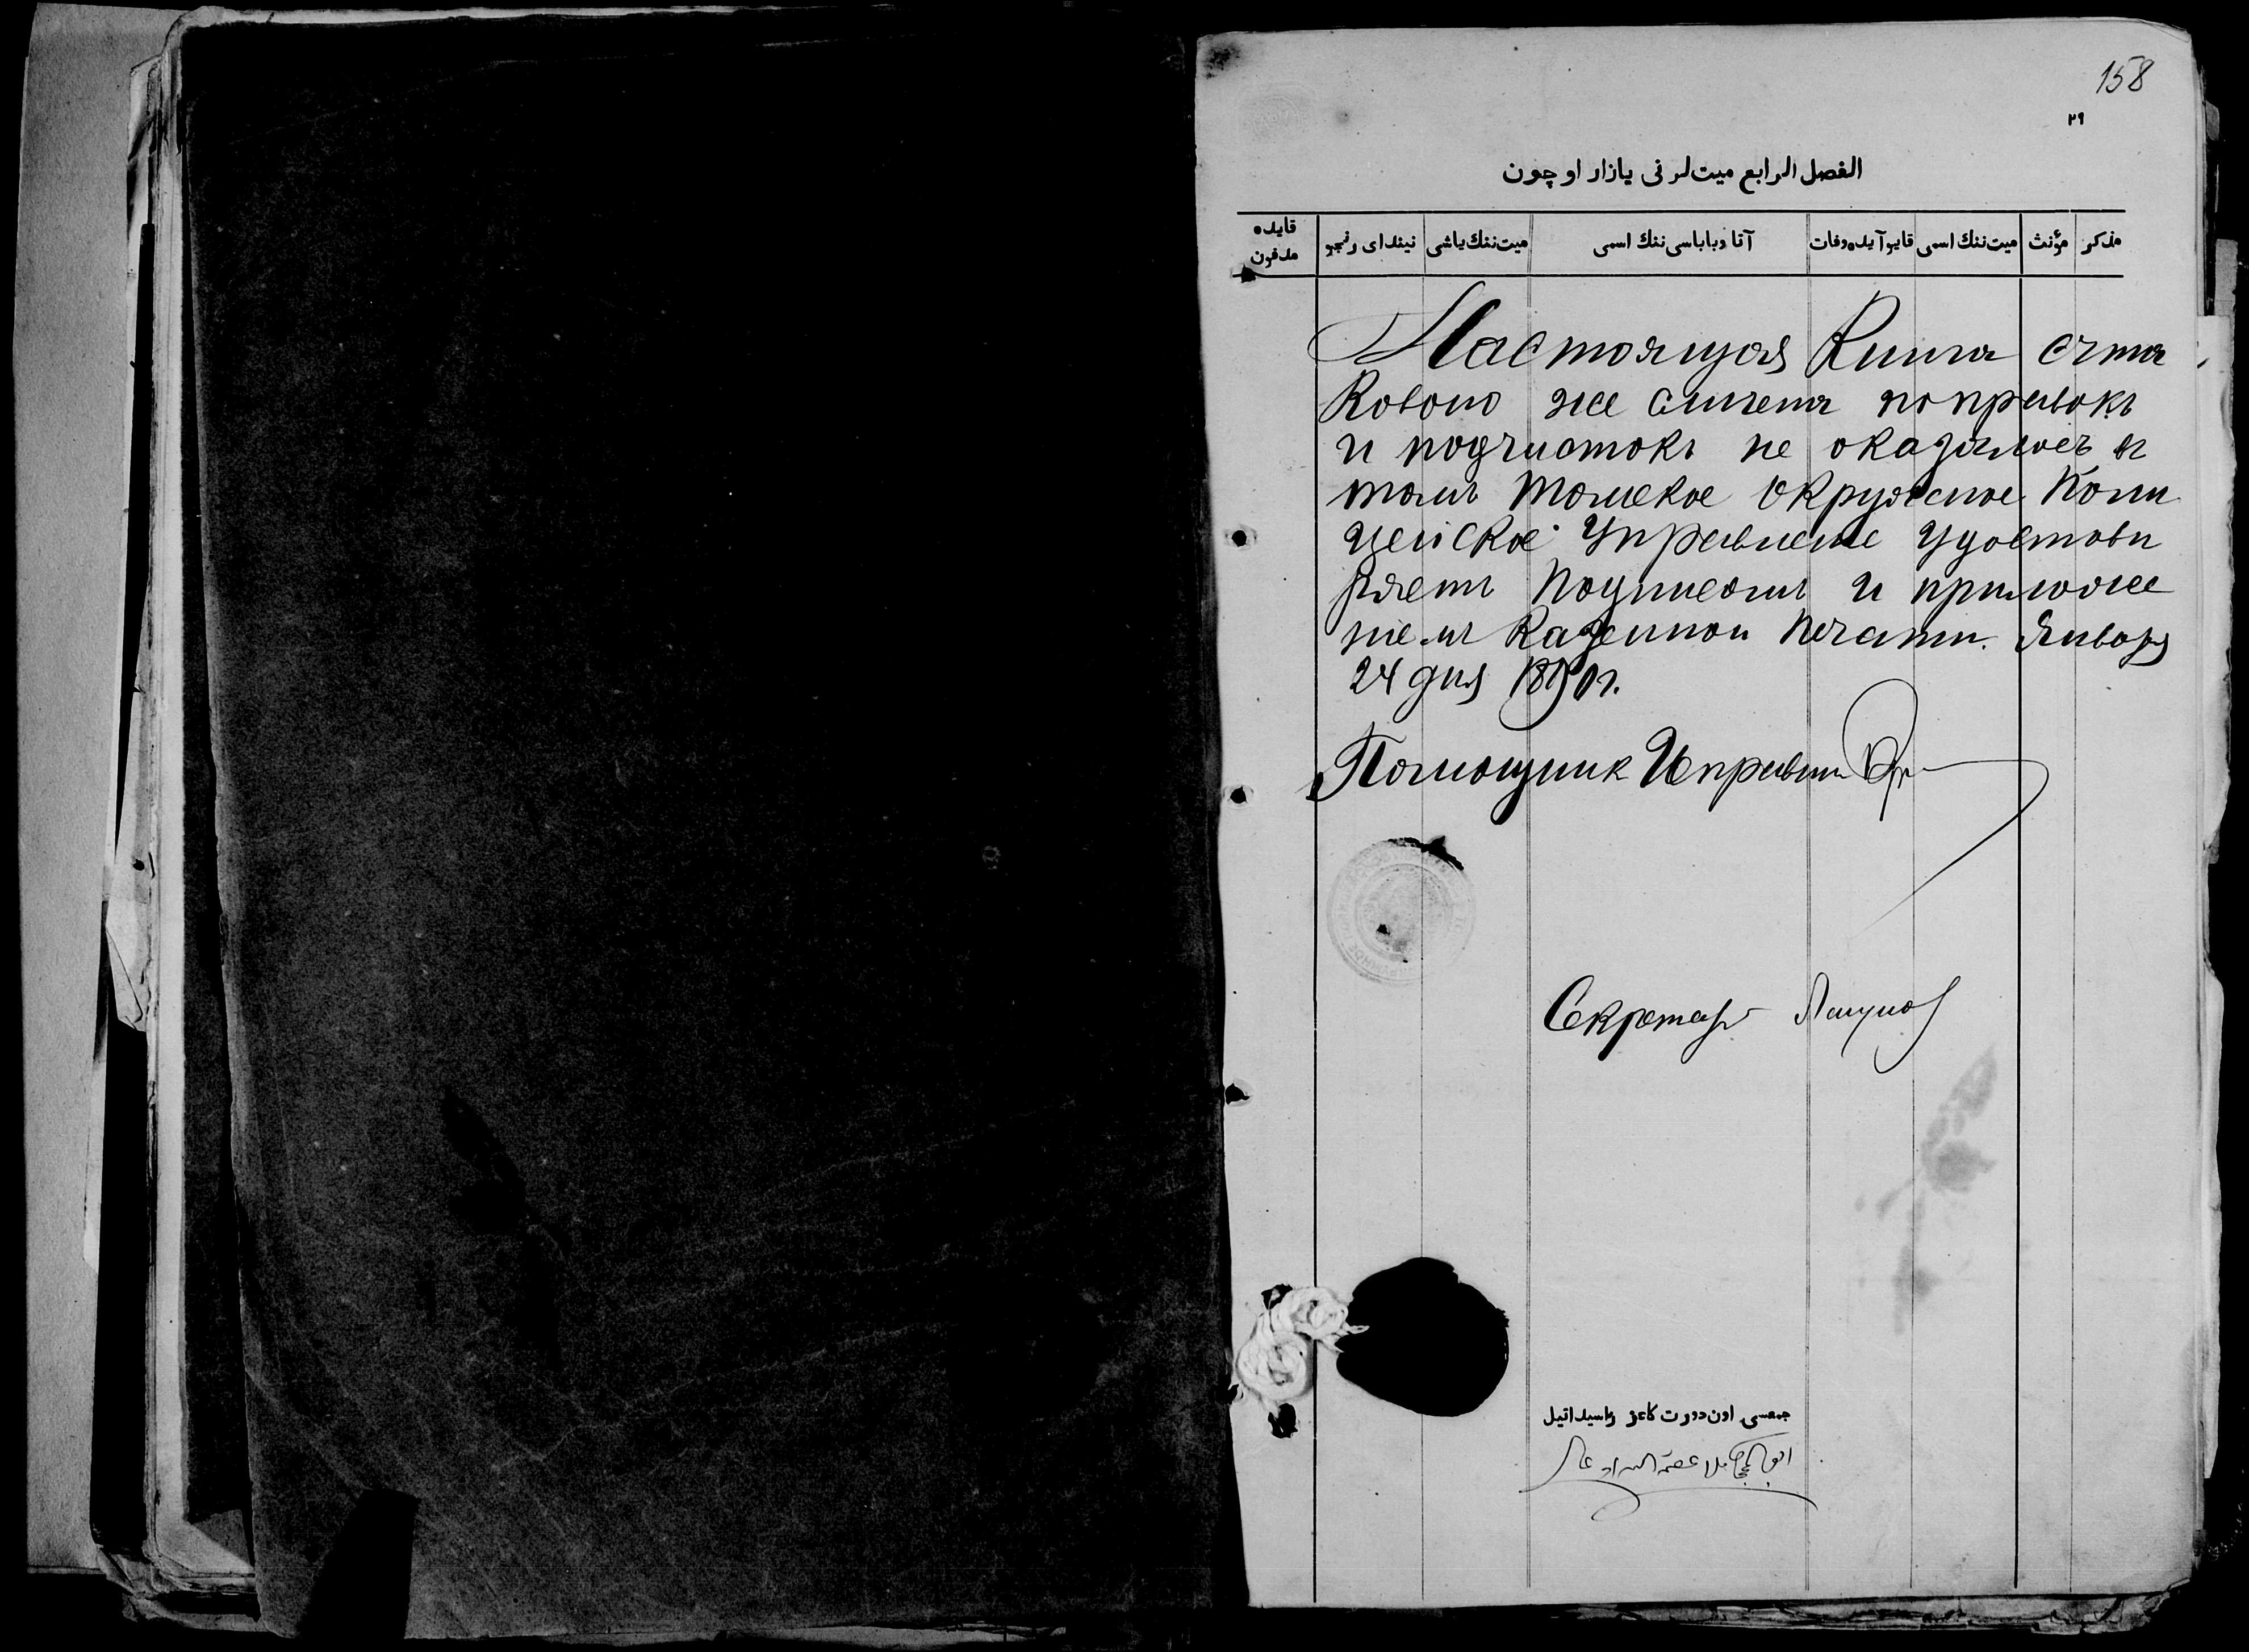 158
٢٩
الفصل الرابع ميت‌لرنى يازار اوچون
مذكر مؤنث ميت‌ننك اسمى قايو آيده وفات آتا وباباسى‌ننك اسمى ميت‌ننك ياشى نيندای رنجو قايده مدفون
Настоящая Книга счета
коваго же снчета поправокъ
и подчистокъ не оказалось в
томъ Томское Окружное Поли
цейское Управление удостови
ряетъ подписомъ и приложе
ніемъ казенной печати. Января
24 дня 1890 г.
Помощник Исправн
Секретарь
جمعسى اون دورت كاغذ